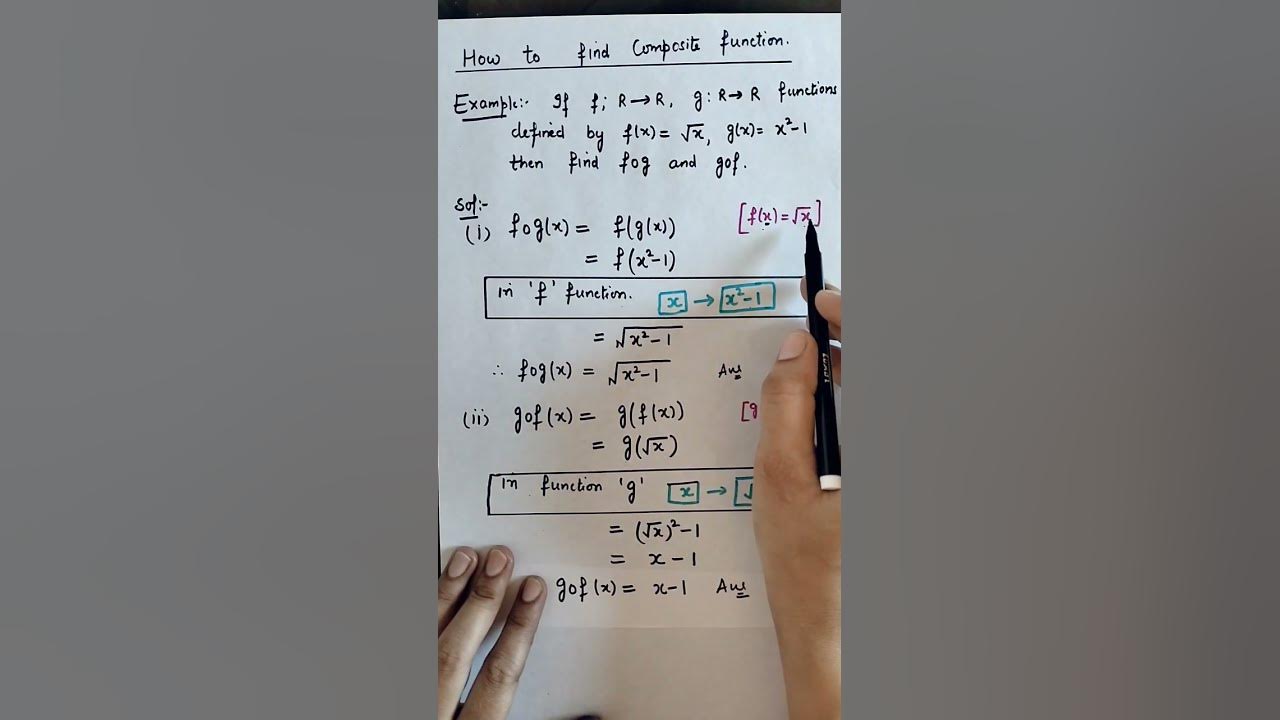 How to find Composite function.
Example:- If f; R→R, g: R→R functions
defined by f(x) = √x, g(x) = x²-1
then find fog and gof.
Sol:-
(i) fog(x) = f(g(x)) [f(x) = √x]
= f(x²-1)
in 'f' function. x → x²-1
= √x²-1
∴ fog(x) = √x²-1 Ans
(ii) gof(x) = g(f(x)) [g
= g(√x)
in function 'g' x → √
= (√x)²-1
= x-1
gof(x) = x-1 Ans